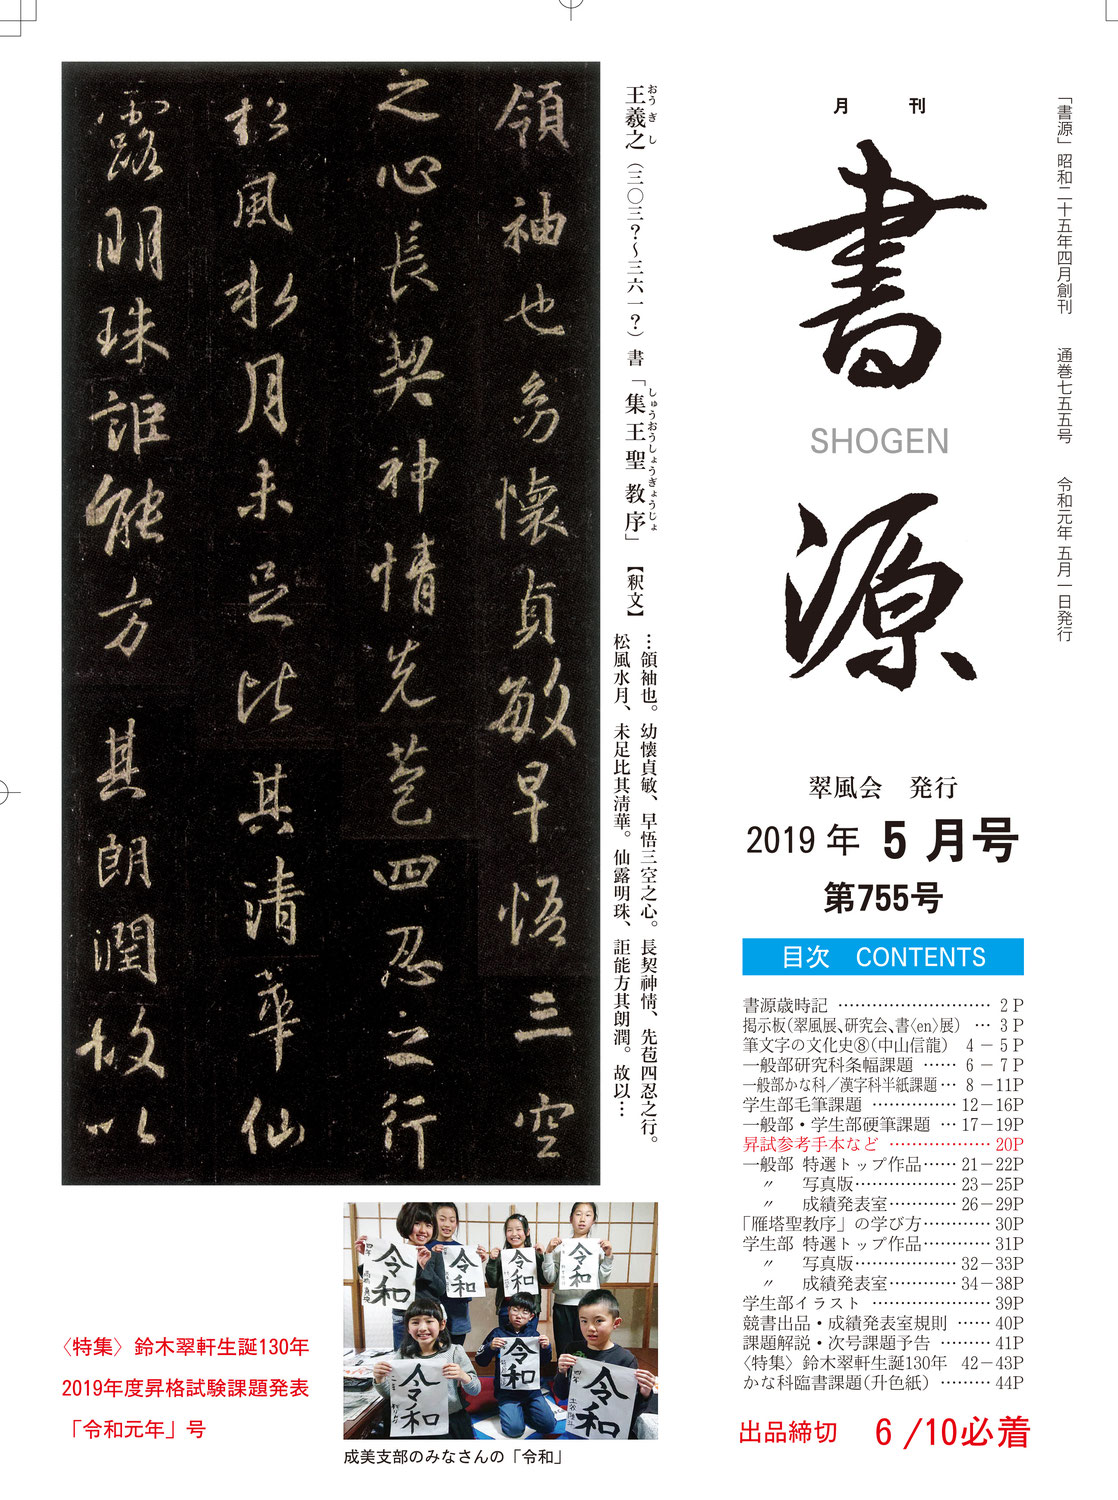 「書源」昭和二十五年四月創刊　通巻七五五号　令和元年五月一日発行
月刊
書源
SHOGEN
翠風会　発行
2019年 5月号
第755号
目次　CONTENTS
書源歳時記 ………………………… 2P
掲示板（翠風展、研究会、書〈en〉展） … 3P
筆文字の文化史⑧（中山信龍） 4－5P
一般部研究科条幅課題 …… 6－7P
一般部かな科／漢字科半紙課題… 8－11P
学生部毛筆課題 …………… 12－16P
一般部・学生部硬筆課題 … 17－19P
昇試参考手本など ……………… 20P
一般部 特選トップ作品…… 21－22P
〃　写真版……………… 23－25P
〃　成績発表室………… 26－29P
「雁塔聖教序」の学び方………… 30P
学生部 特選トップ作品………… 31P
〃　写真版……………… 32－33P
〃　成績発表室………… 34－38P
学生部イラスト ………………… 39P
競書出品・成績発表室規則 …… 40P
課題解説・次号課題予告 ……… 41P
〈特集〉鈴木翠軒生誕130年 42－43P
かな科臨書課題（升色紙）……… 44P
出品締切　6/10必着
王羲之（三〇三？～三六一？）書「集王聖教序」【釈文】
おうぎし
しゅうおうしょうぎょうじょ
…領袖也。幼懐貞敏、早悟三空之心。長契神情、先苞四忍之行。
松風水月、未足比其清華。仙露明珠、詎能方其朗潤。故以…
領袖也幼懷貞敏早悟三空
之心長契神情先苞四忍之行
松風水月未足比其清華仙
露明珠詎能方其朗潤故以
〈特集〉鈴木翠軒生誕130年
2019年度昇格試験課題発表
「令和元年」号
令和
令和
令和
令和
令和
令和
令和
成美支部のみなさんの「令和」